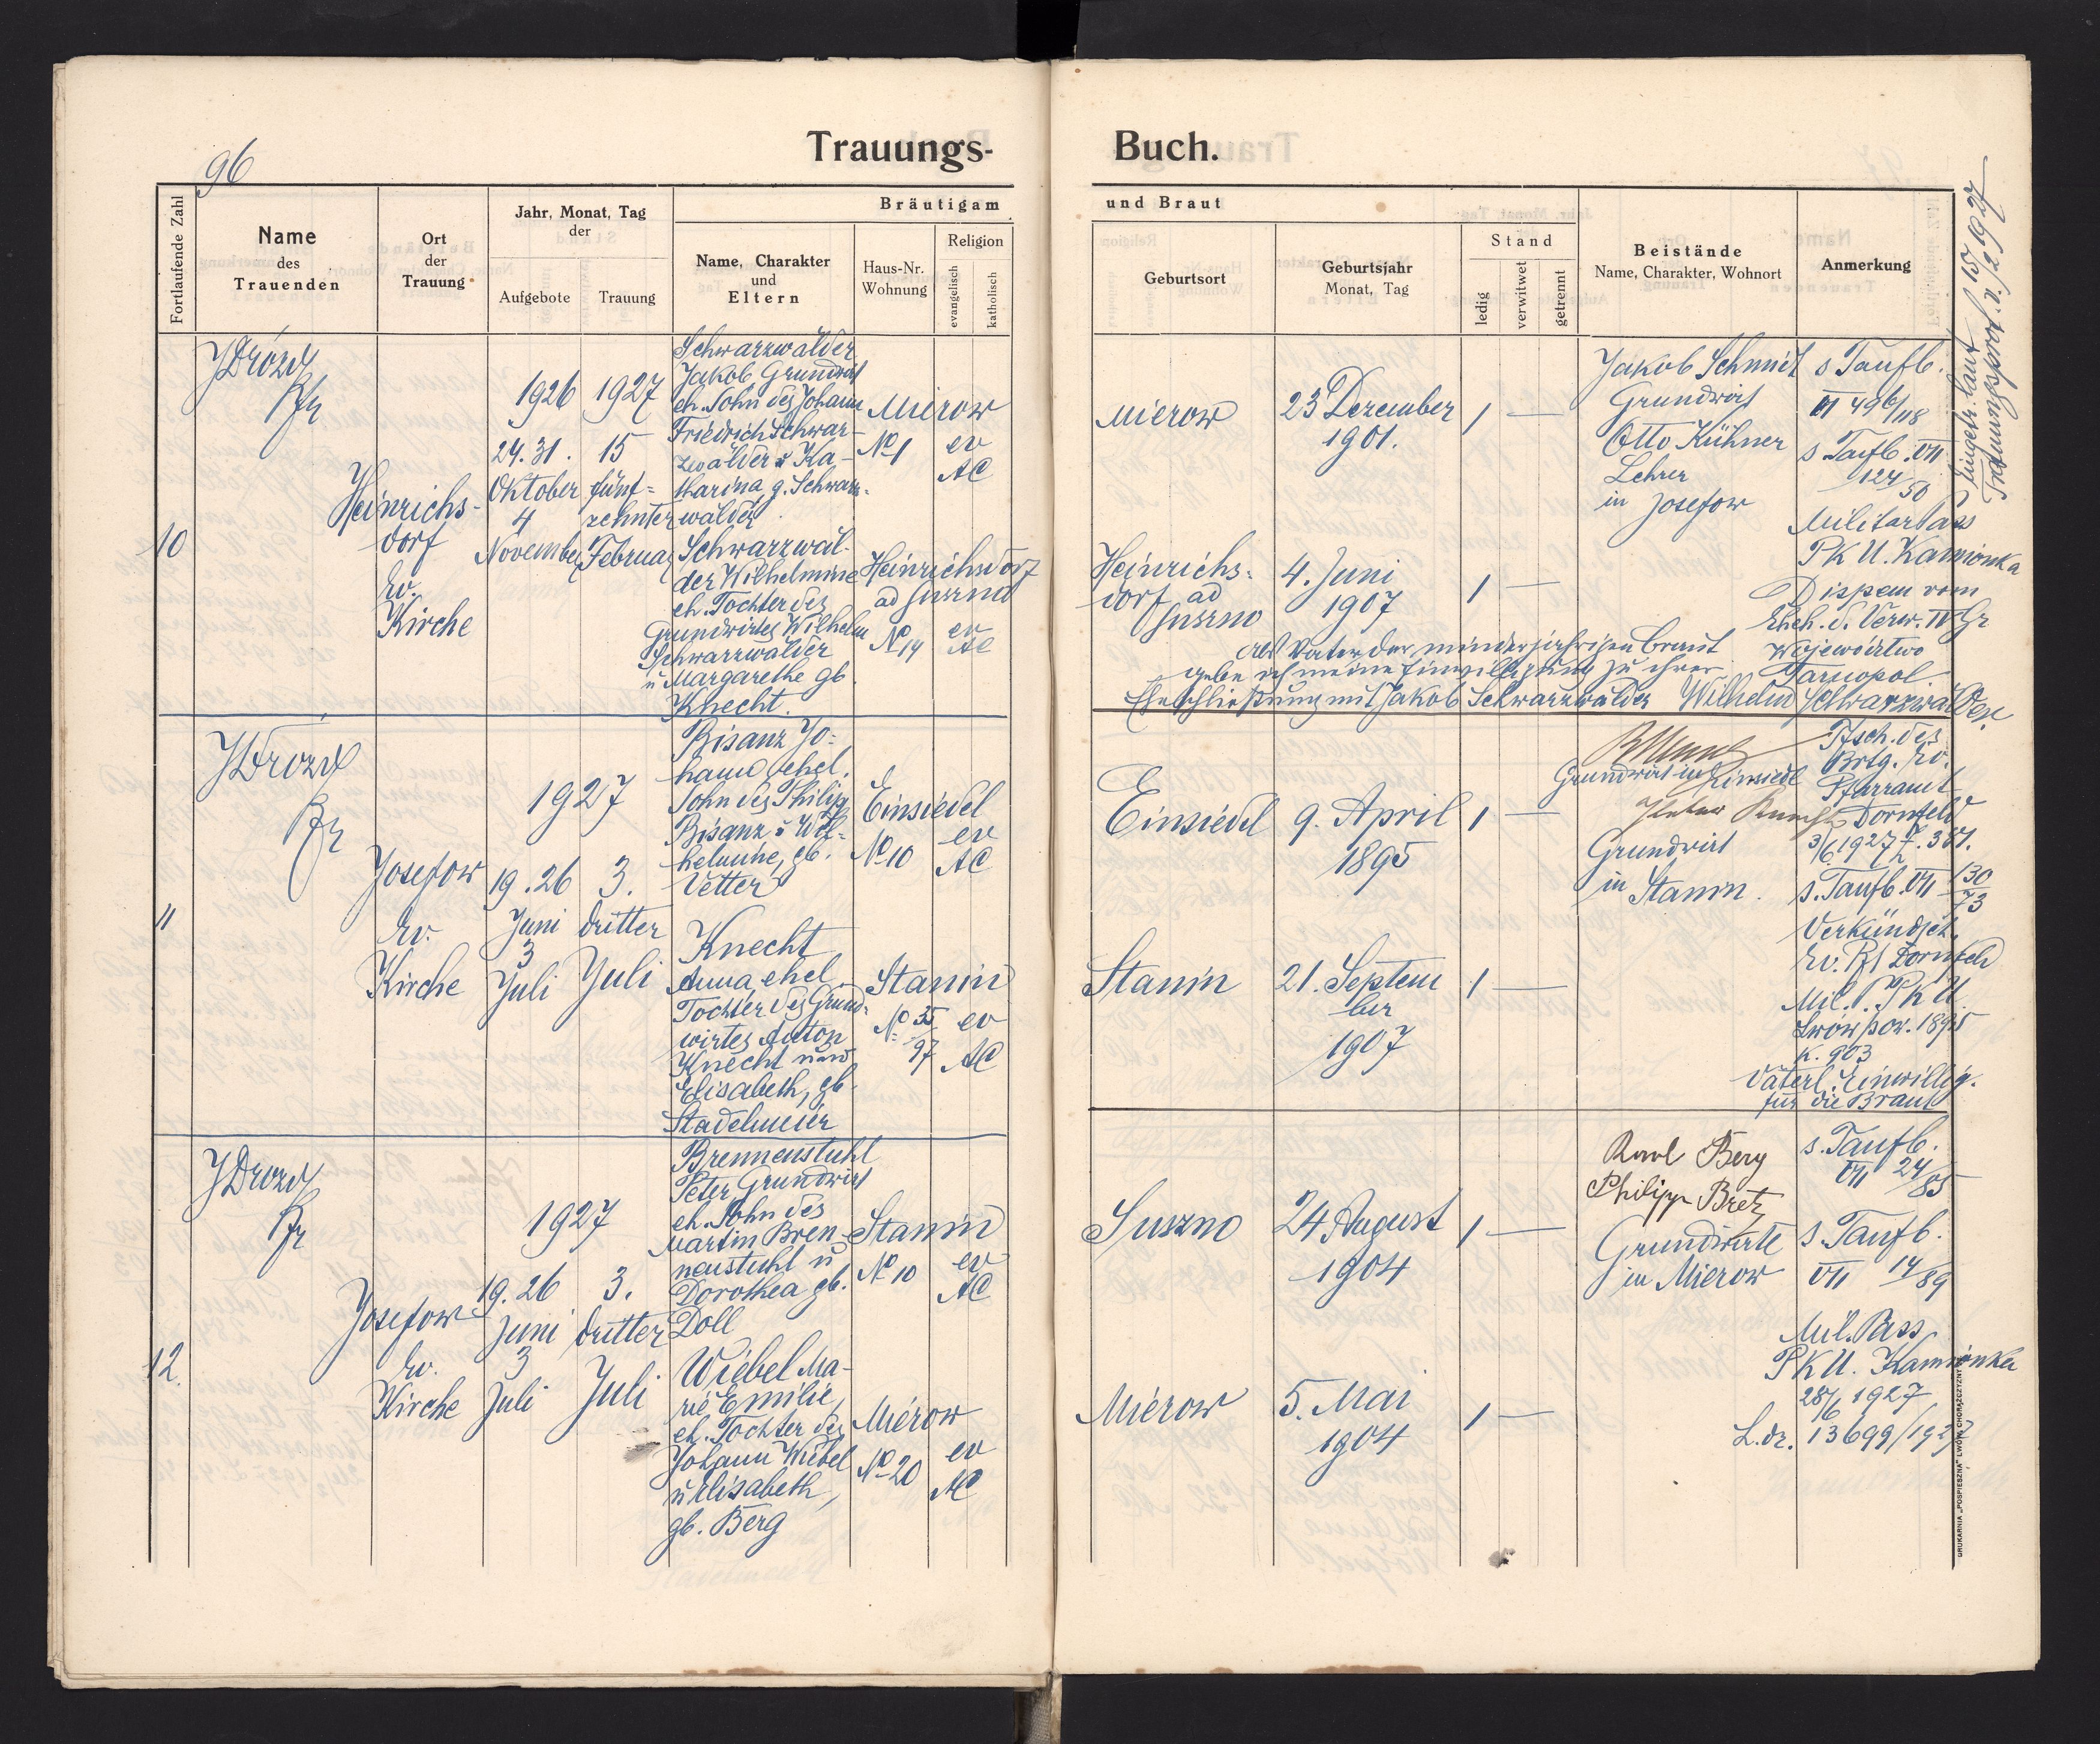 96
Trauungs-
Buch.
Fortlaufende Zahl
Name
des
Trauenden
Ort
der
Trauung
Jahr, Monat, Tag
der
Aufgebote
Trauung
Bräutigam
Name, Charakter
und
Eltern
Haus-Nr.
Wohnung
Religion
evangelisch
katholisch
und Braut
Geburtsort
Geburtsjahr
Monat, Tag
Stand
ledig
verwitwet
getrennt
Beistände
Name, Charakter, Wohnort
Anmerkung
10
JDrozd
Pfr
Heinrichs-
dorf
Ev.
Kirche
1926
24. 31.
Oktober
4
November
1927
15
fünf=
zehnter
Februar
Schwarzwälder
Jakob Grundwirt
eh. Sohn des Johann
Friedrich Schwar-
zwälder u Ka-
tharina, g. Schwarz-
wälder
Mierow
No 1
ev
AC
Schwarzwäl-
der Wilhelmine
eh. Tochter des
Grundwirtes Wilhelm
Schwarzwälder
u Margarethe gb
Knecht.
Heinrichsdorf
ad Suszno
No 14
ev
AC
Mierow
23 Dezember
1901.
1 —
Heinrichs-
dorf ad
Suszno
4. Juni
1907
1 —
Jakob Schmidt
Grundwirt
Otto Kühner
Lehrer
in Josefow
s Taufb.
VI 496/118
s Taufb. VII
124/50
Militär Pass
PKU. Kamionka
Dispem vom
Eheh. d. Verw. IV Gr
Wojewódrtwo
Tarnopol
Als Vater der minderjährigen Braut
gebe ich meine Einwilligung zu ihrer
Eheschließung mit Jakob Schwarzwälder Wilhelm Schwarzwälder.
Eingetr. laut
Trauungsprot. v. 15/2 1927
11
JDrozd
Pfr
Josefow
Ev.
Kirche
1927
19. 26
Juni
3
Juli
3.
dritter
Juli
Bisanz Jo-
hann ehel.
Sohn des Philipp
Bisanz u Wil-
helmine, gb.
Vetter
Einsiedel
No 10
ev
AC
Knecht
Anna ehel
Tochter des Grund-
wirtes Anton
Knecht und
Elisabeth, gb.
Stadelmeier
Stanin
No 35
97
ev
AC
Einsiedel
9. April
1895
1 —
Stanin
21. Septem
ber
1907
1 —
Grundwirt in Einsiedl
Grundwirt
in Stanin.
Tfsch. des
Brtg. Ev.
Pfarramt
Dornfeld
3/6 1927 Z. 381.
s. Taufb. VII 130/73
Verkündsch.
Ev. Pf Dornfeld
Mil. P. PKU
Lwów pow. 1895
K. 903
Väterl. Einwillig.
für die Braut
12.
JDrozd
Pfr
Josefow
Ev.
Kirche
1927
19. 26
Juni
3
Juli
3.
dritter
Juli
Brennenstuhl
Peter, Grundwirt
eh. Sohn des
Martin Bren-
nenstuhl u
Dorothea gb.
Doll
Stanin
No 10
ev
AC
Wiebel Ma-
rie Emilie,
eh. Tochter des
Johann Wiebel
u Elisabeth,
gb. Berg
Mierow
No 20
ev
AC
Suszno
24 August
1904
1 —
Mierow
5. Mai
1904
1 —
Karl Berg
Philipp Bretz
Grundwirte
in Mierow
s. Taufb.
VII 24/85
s. Taufb.
VII 14/89
Mil. Pass
PKU. Kamionka
28/6 1927
L.dz. 13699/1927
DRUKARNIA „POSPIESZNA" LWÓW, CHORĄŻCZYZNY